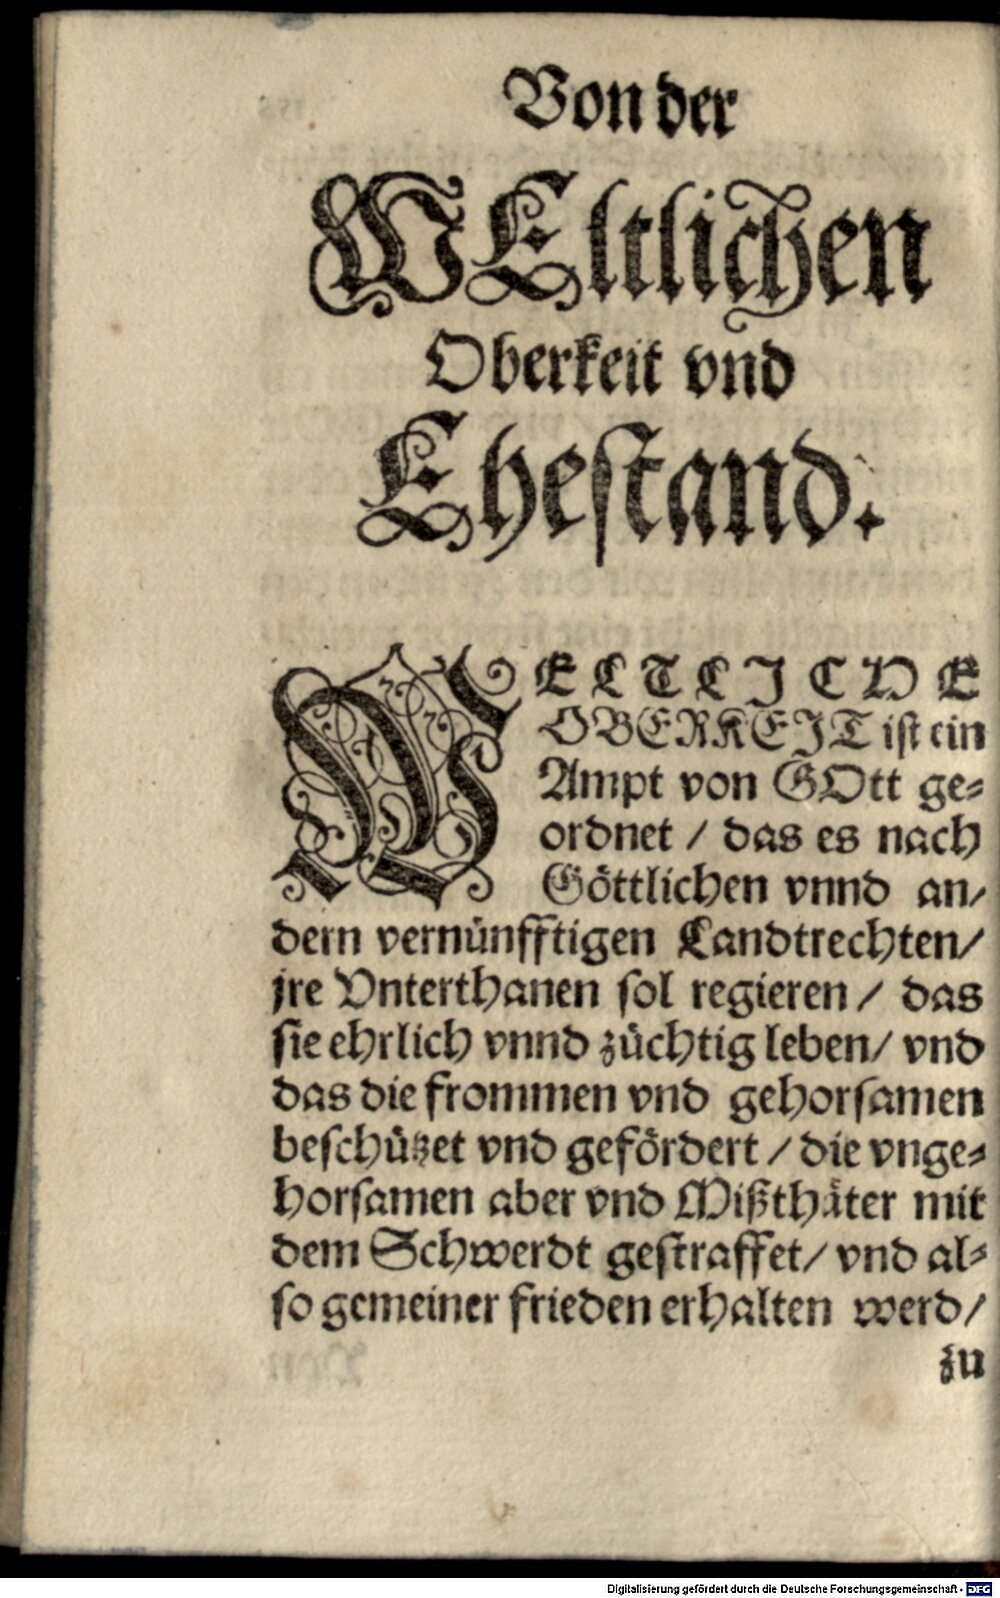 Von der
WEltlichen
Oberkeit vnd
Eheſtand.
WELTLICHE
OBERKEIT iſt ein
Ampt von GOtt ge⸗
ordnet / das es nach
Göttlichen vnnd an/
dern vernünfftigen Landtrechten/
jre Vnterthanen ſol regieren / das
ſie ehrlich vnnd züchtig leben/ vnd
das die frommen vnd gehorſamen
beſchützet vnd gefördert / die vnge⸗
horſamen aber vnd Mißthäter mit
dem Schwerdt geſtraffet/ vnd al⸗
ſo gemeiner frieden erhalten werd/
zu
Digitalisierung gefördert durch die Deutsche Forschungsgemeinschaft - DFG